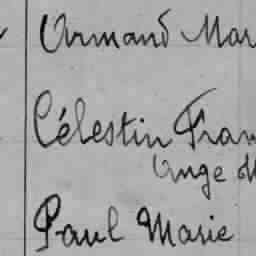 Armand Mar
Célestin Fran
Ange M
Paul Marie